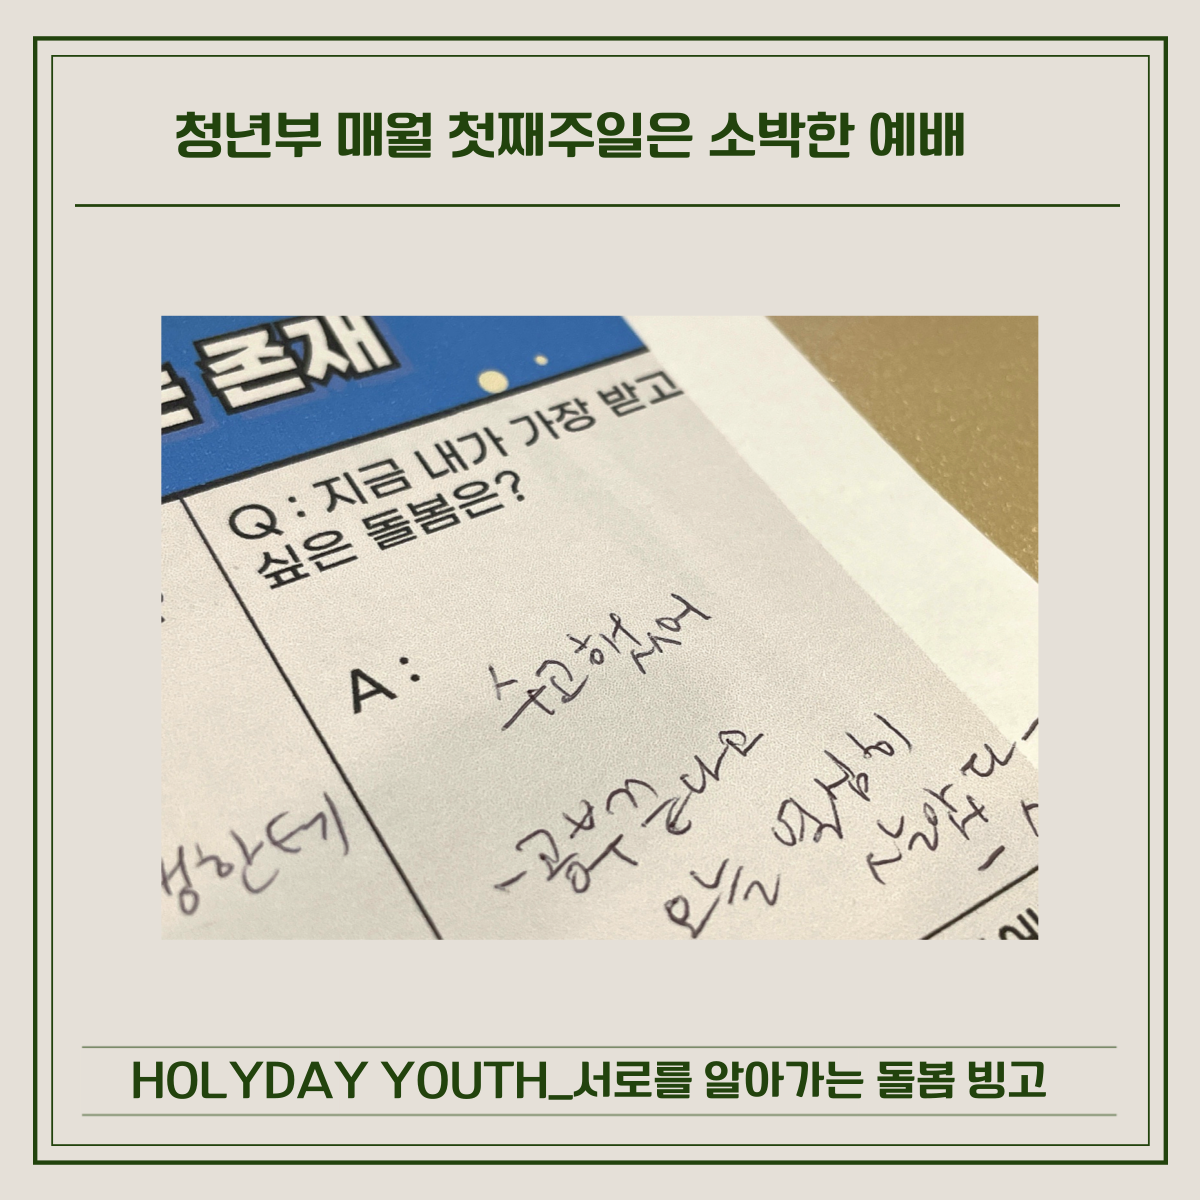 청년부 매월 첫째주일은 소박한 예배
존재
Q : 지금 내가 가장 받고
싶은 돌봄은?
A :
수고했어
오늘 열심히
살았다
HOLYDAY YOUTH_서로를 알아가는 돌봄 빙고